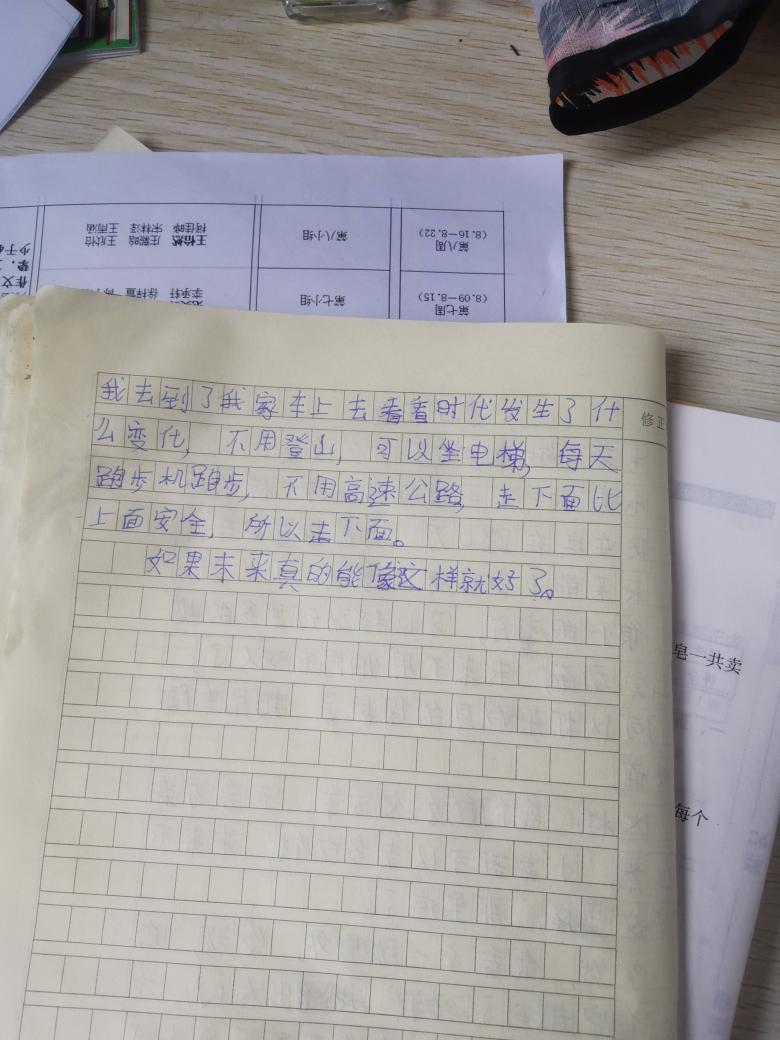 第八周
（8.16—8.22）
第八小组
王怡然 庄颢晗 王欣怡
柯佳晔 宋林泽 王雨涵
第七周
（8.09—8.15）
第七小组
李承轩 徐梓宣
作文
我去到了我家车上去看看时代发生了什
么变化，不用登山，可以坐电梯，每天
跑步机跑步，不用高速公路，走下面比
上面安全，所以走下面。
如果未来真的能像这样就好了。
修正
皂一共卖
每个